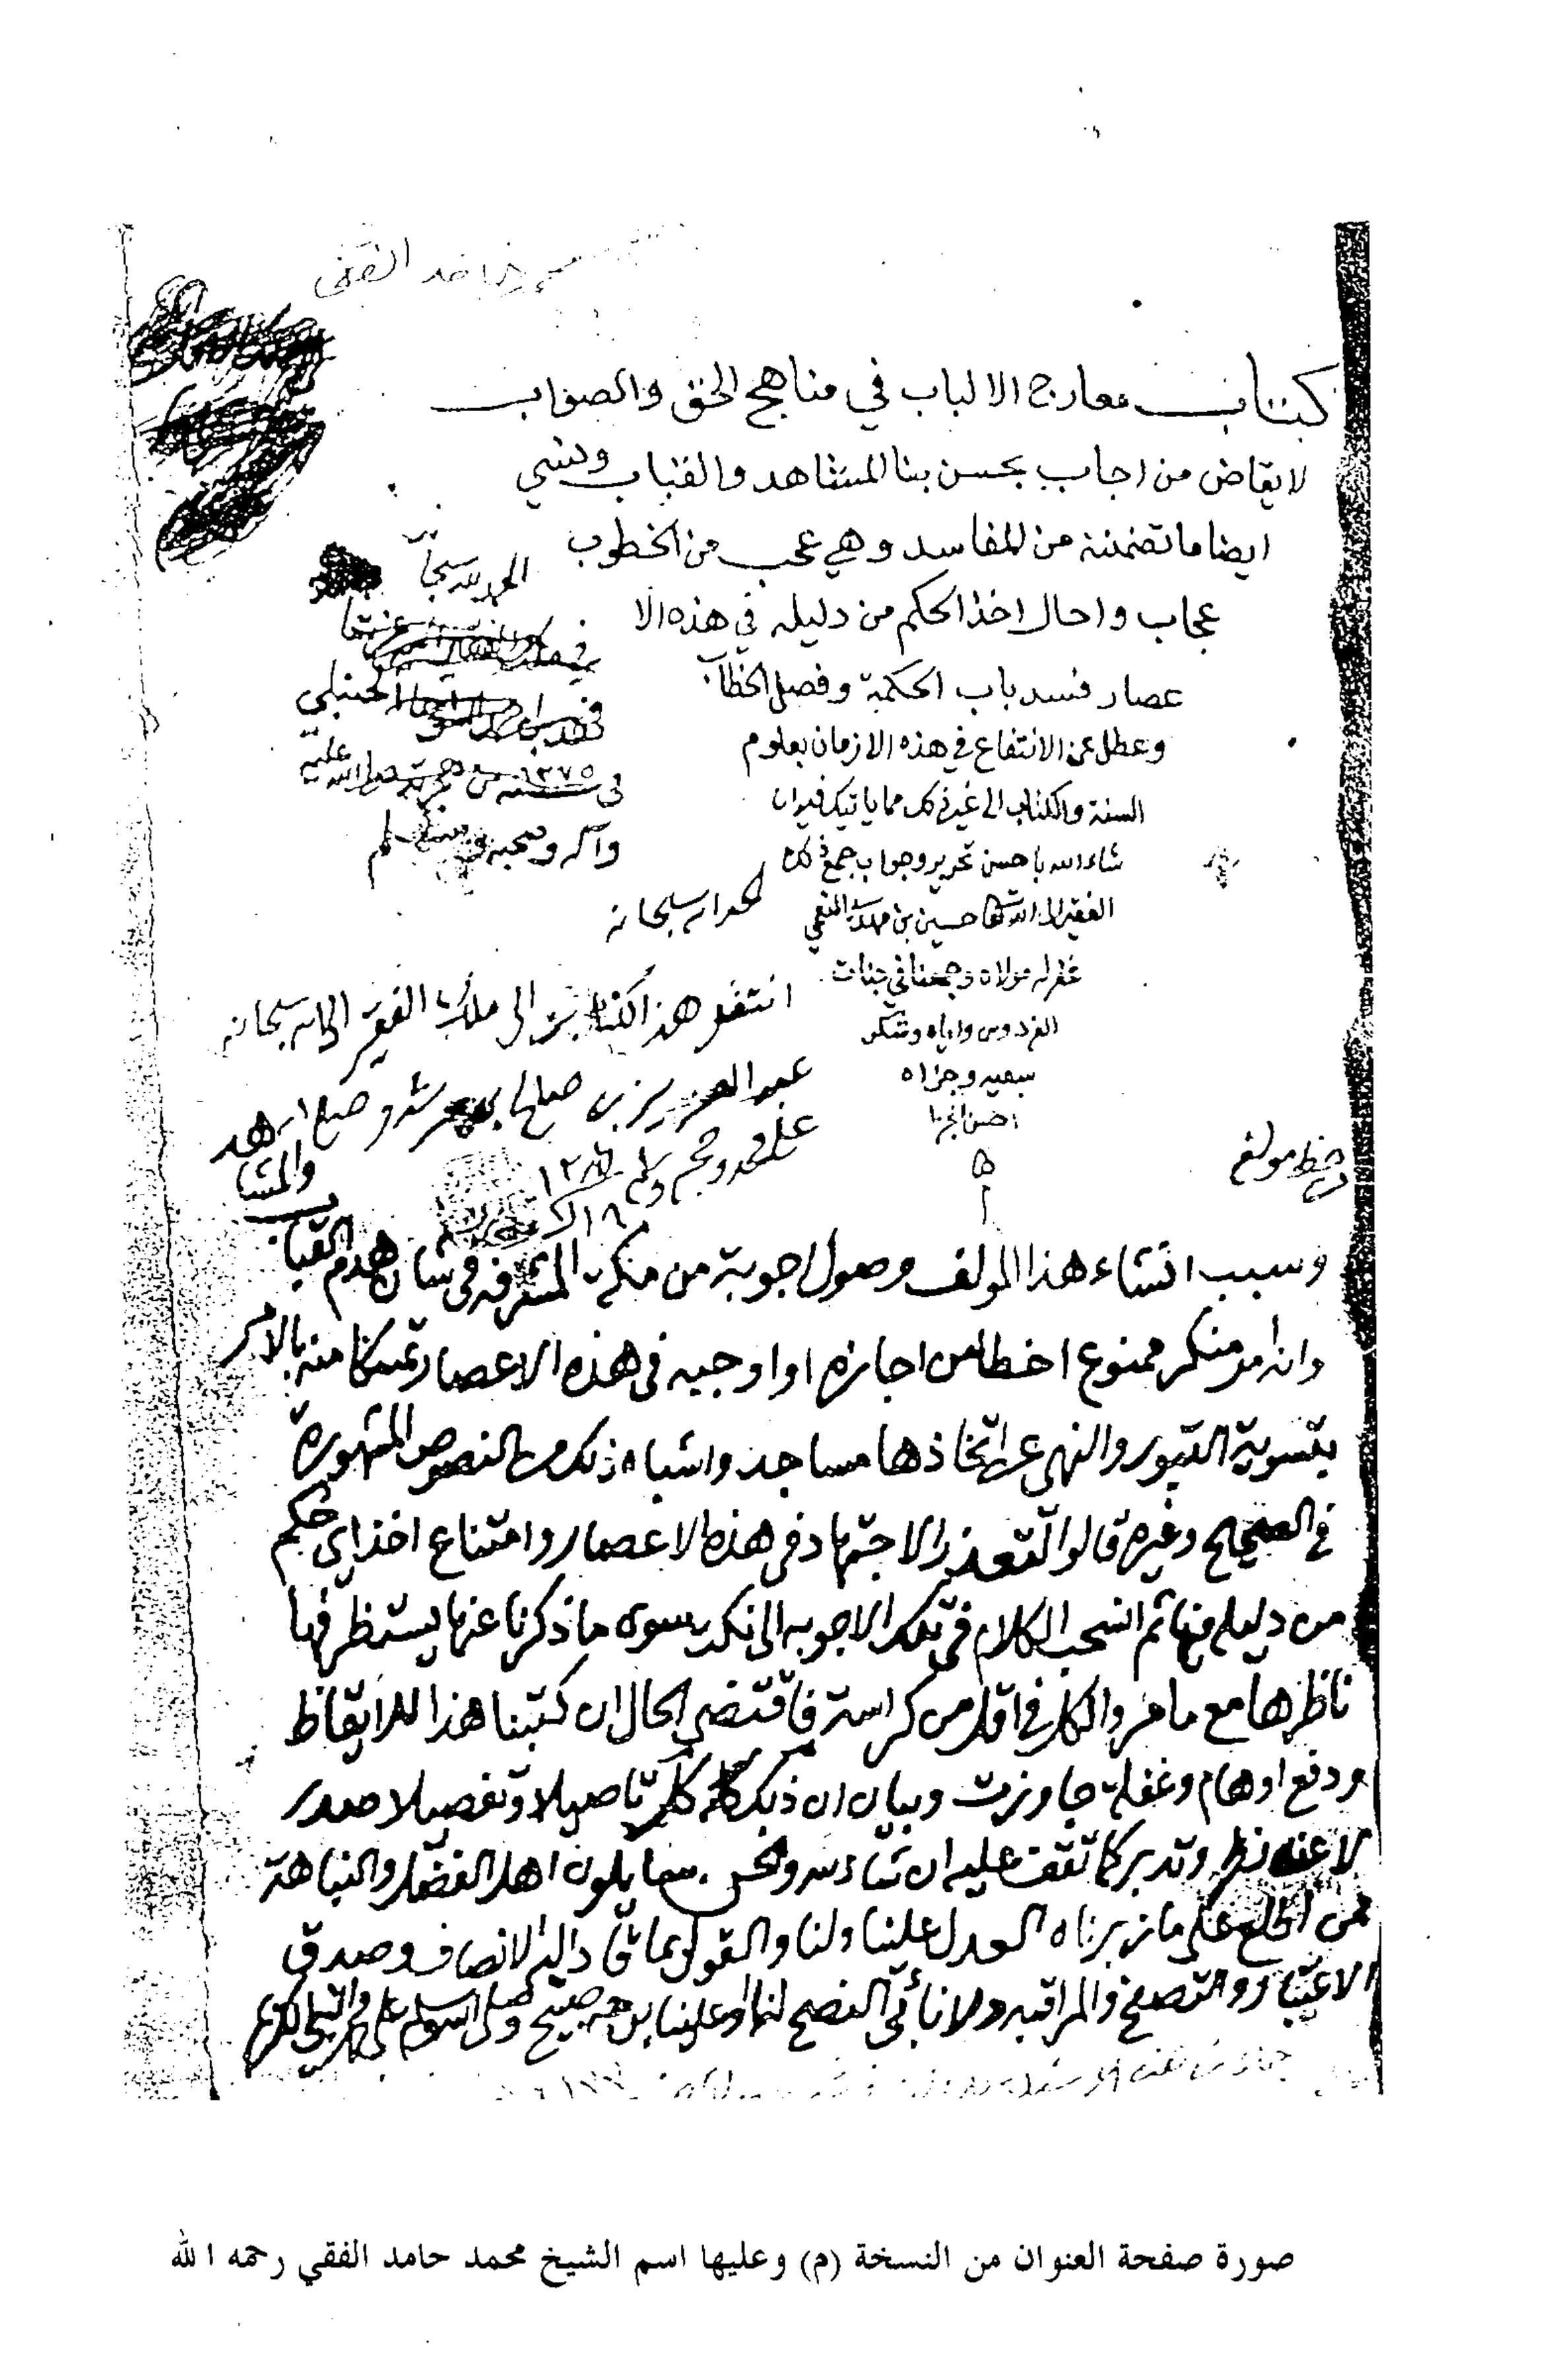 محمد حامد الفقي
كتاب معارج الالباب في مناهج الحق والصواب
لايقاض من اجاب بحسن بنا المشاهد والقباب ونسي
ايضا ما تضمنته من المفاسد وهي عجب من الخطوب
عجاب واحال اخذ الحكم من دليله في هذه الا
عصار فسد باب الحكمة وفصل الخطاب
وعطل عن الانتفاع في هذه الازمان بعلوم
السنة والكتاب الى غير ذلك مما ياتيك فيه ان
شاء الله باحسن تحرير وجواب جمع ذلك
الفقير الى الله تعالى حسين بن مهدي النعمي
غفر له مولاه وجمعنا في جنات
الفردوس واياه وشكر
سعيه وجزاه
احسن الجزا
الحمد لله سبحانه
في
في الحنبلي
في سنة ١٢٧٥ من هجرته صلى الله عليه
وآله وصحبه وسلم
الحمد لله سبحانه
انتقل هذا الكتاب الى ملك الفقير الى الله سبحانه
عبد العزيز بن صالح بن مرشد وصلى الله
على محمد وصحبه وسلم
بخط مولفه
وسبب انشاء هذا المولف وصول اجوبة من مكة المشرفه في شان هدم القباب والمشاهد
وانه امر منكر ممنوع اخطا من اجازه او اوجبه في هذه الاعصار تمسكا منه بالامر
بتسوية القبور والنهي عن اتخاذها مساجد واشباه ذلك من النصوص المشهورة
في الصحيح وغيره قالوا لتعذر الاجتهاد في هذه الاعصار وامتناع اخذ اي حكم
من دليله منها ثم انسحب الكلام في تلك الاجوبه الى نكت سوى ما ذكرنا عنها يستنظر فيها
ناظرها مع ما مر والكل في اقل من كراسة فاقتضى الحال ان كتبنا هذا للايقاظ
ودفع اوهام وغفلة جاوزت وبيان ان ذلك كله تاصيلا وتفصيلا صدر
لا عن نظر وتدبر كما تقف عليه ان شاء الله ونحن سايلون اهل الفضل والنباهة
ممن اطلع على ما زبرناه العدل علينا ولنا والقول بما قاد اليه الانصاف وصدق
الاعتبار والتصفح والمراقبه ولا نأبى النصح لنا او علينا من جهة صحيح وصلى الله وسلم على محمد النبي الكريم
صورة صفحة العنوان من النسخة (م) وعليها اسم الشيخ محمد حامد الفقي رحمه الله